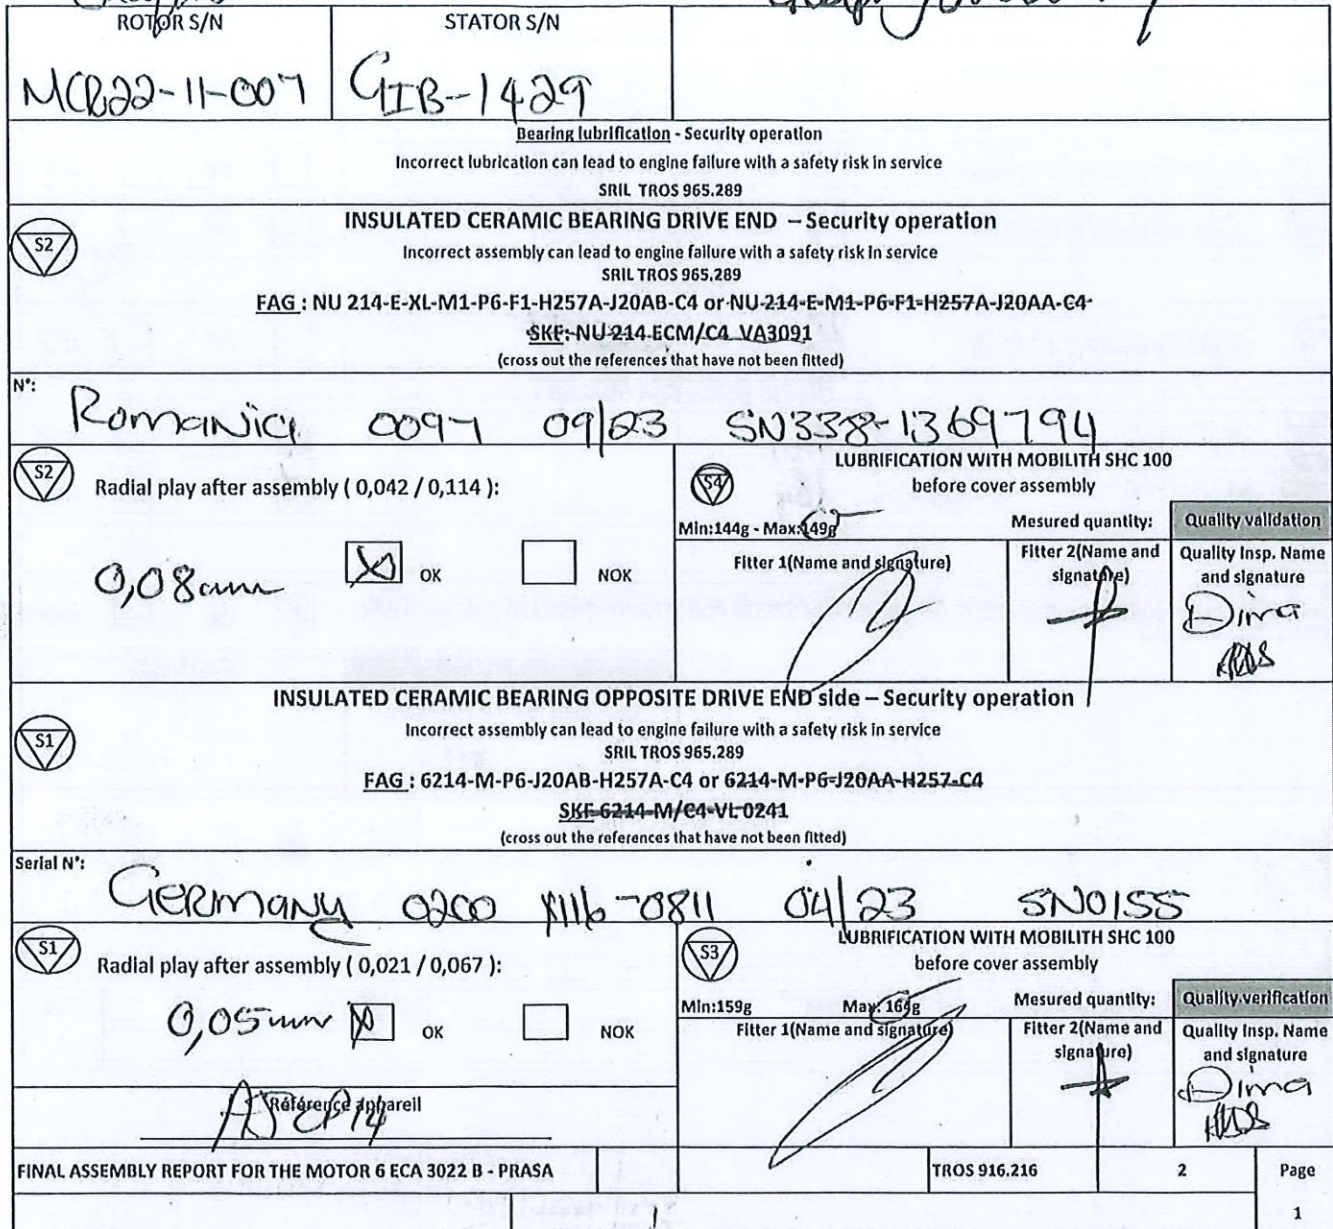 ROTOR S/N
STATOR S/N
MCR22-11-007
GIB-1429
Bearing lubrification - Security operation
Incorrect lubrication can lead to engine failure with a safety risk in service
SRIL TROS 965.289
S2
INSULATED CERAMIC BEARING DRIVE END – Security operation
Incorrect assembly can lead to engine failure with a safety risk in service
SRIL TROS 965.289
FAG : NU 214-E-XL-M1-P6-F1-H257A-J20AB-C4 or NU-214-E-M1-P6-F1-H257A-J20AA-C4
SKF: NU 214 ECM/C4 VA3091
(cross out the references that have not been fitted)
N°:
Romania 0097 09/23 SN338-1369794
S2
Radial play after assembly ( 0,042 / 0,114 ):
0,08mm
OK
NOK
S4
LUBRIFICATION WITH MOBILITH SHC 100
before cover assembly
Min:144g - Max:149g
Mesured quantity:
Quality validation
Fitter 1(Name and signature)
Fitter 2(Name and signature)
Quality Insp. Name and signature
Dima
INSULATED CERAMIC BEARING OPPOSITE DRIVE END side – Security operation
S1
Incorrect assembly can lead to engine failure with a safety risk in service
SRIL TROS 965.289
FAG : 6214-M-P6-J20AB-H257A-C4 or 6214-M-P6-J20AA-H257-C4
SKF 6214-M/C4-VL 0241
(cross out the references that have not been fitted)
Serial N°:
Germany 0200 -0811 04/23 SN0155
S1
Radial play after assembly ( 0,021 / 0,067 ):
0,05mm
OK
NOK
Référence appareil
S3
LUBRIFICATION WITH MOBILITH SHC 100
before cover assembly
Min:159g Max: 164g
Mesured quantity:
Quality verification
Fitter 1(Name and signature)
Fitter 2(Name and signature)
Quality Insp. Name and signature
Dima
FINAL ASSEMBLY REPORT FOR THE MOTOR 6 ECA 3022 B - PRASA
TROS 916.216
2
Page
1